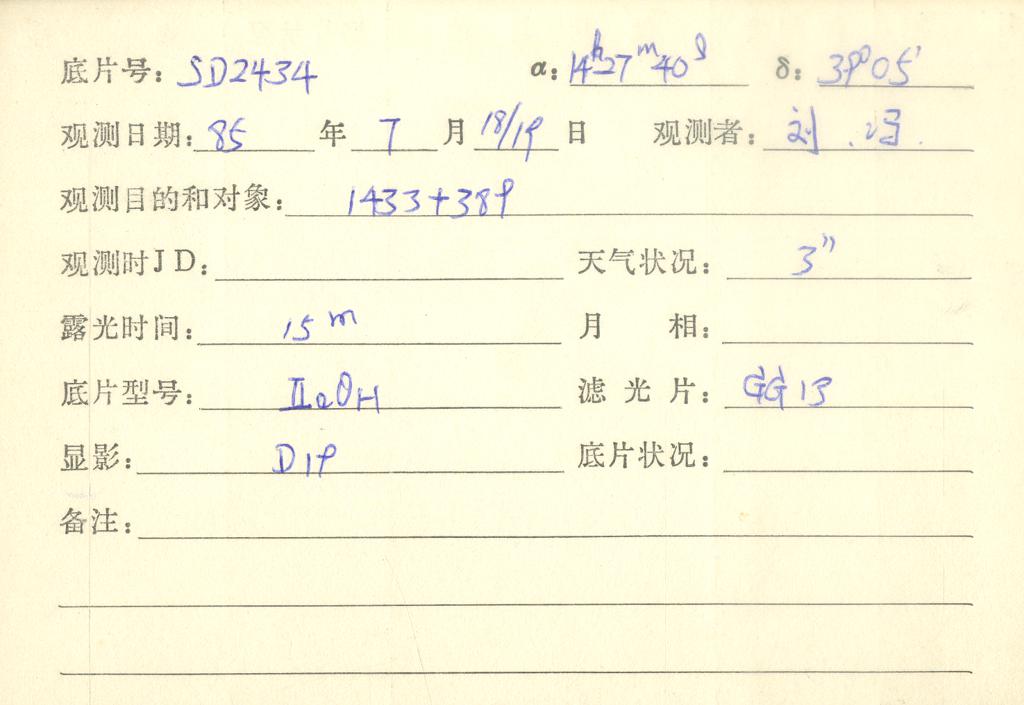 底片号: SD2434 α: 14h27m40s δ: 39°05′
观测日期: 85 年 7 月 18/19 日 观测者: 刘.冯.
观测目的和对象: 1433+389
观测时JD: 天气状况: 3″
露光时间: 15m 月 相:
底片型号: ⅡaOH 滤 光 片: GG13
显影: D19 底片状况:
备注: